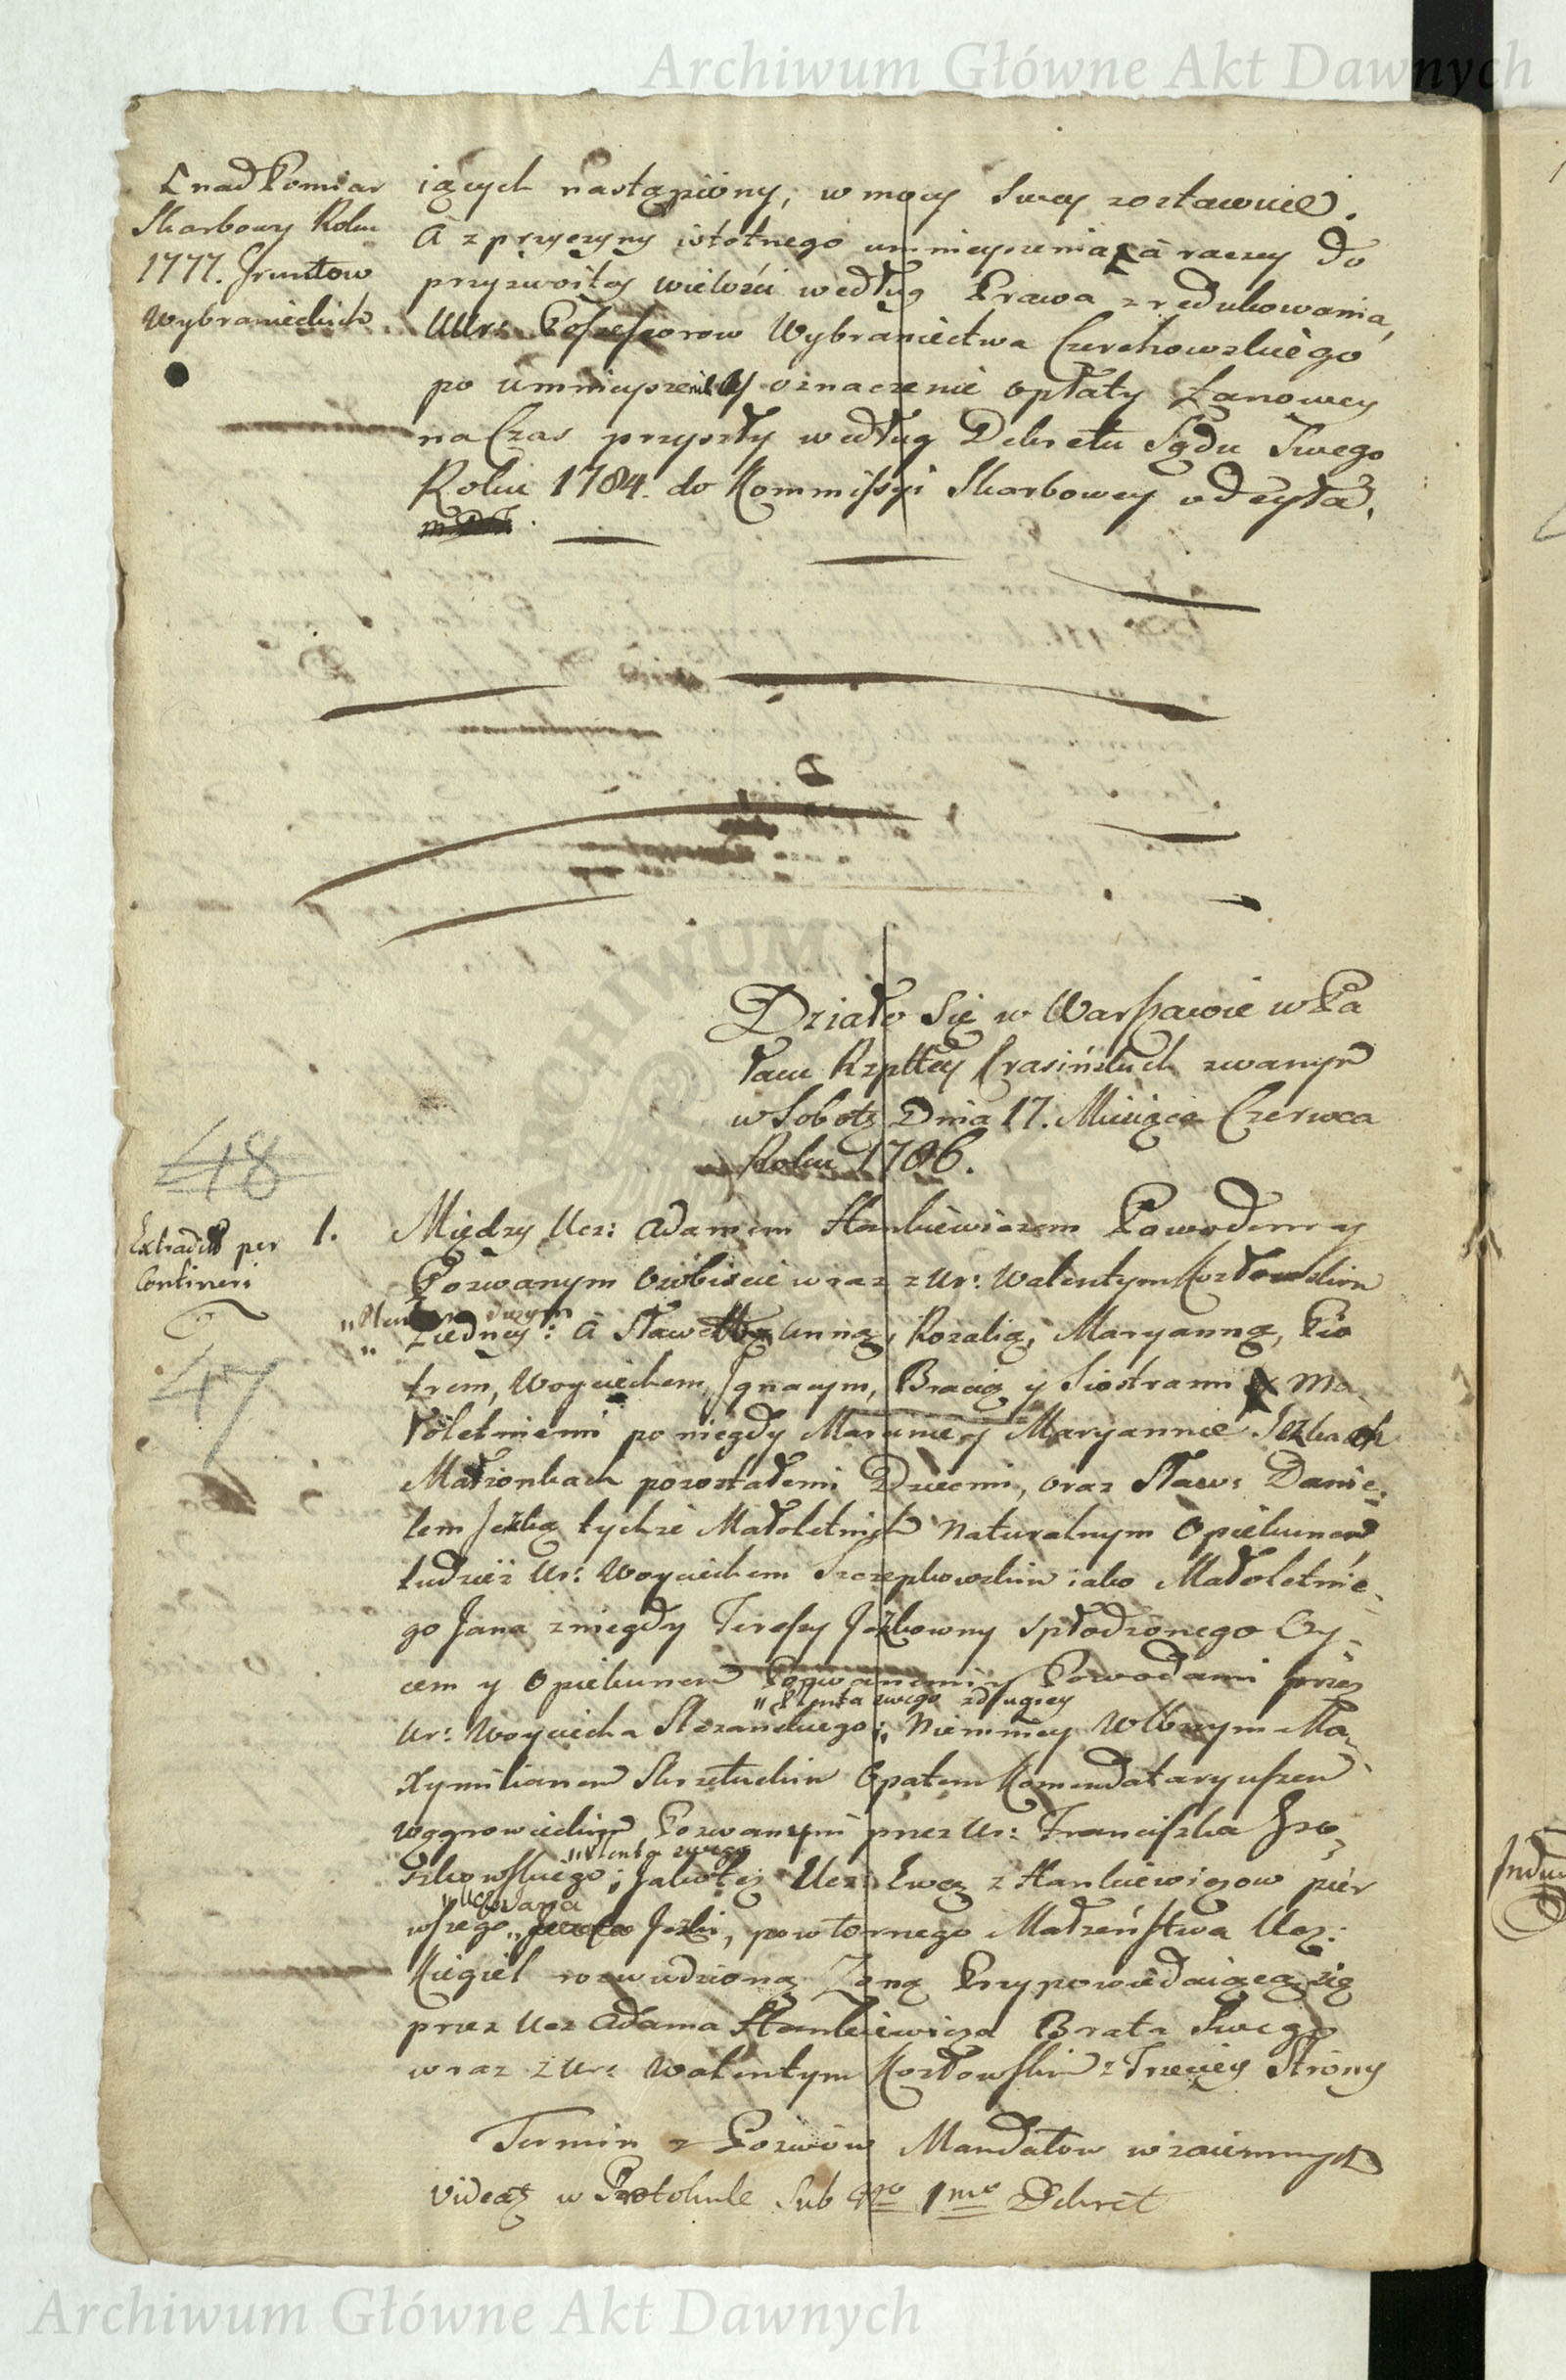 Archiwum Główne Akt Dawnych
Ł nad Pomiar
Skarbowy Roku
1777. Gruntow
Wybranieckich
iących nastąpiony, w mocy swey zostawuie.
A z przyczyny istotnego umnieyszenia Ł a raczey do
przyzwoitey wielości według Prawa zredukowania,
UUr: Possessorow Wybraniectwa Czerchowskiego
po umnieyszenie y oznaczenie opłaty Łanowey
na Czas przyszły według Dekretu Sądu Swego
Roku 1784. do Kommissyi Skarbowey odsyła.
Działo się w Warszawie w Pa
łacu Rzpltey Krasińskich zwanym
w Sobotę Dnia 17. Miesiąca Czerwca
Roku 1786.
48
Extradit per
Contineri
47
1. Między Ucz: Adamem Stankiewiczem Powodem y
Pozwanym Osobiscie wraz z Ur: Walentym Kozłowskim
swym
z iedney: a Sław Anną, Rozalią, Maryanną, Pio
trem, Woyciechem, Ignacym, Bracią y Siostrami Ma
łoletniemi po niegdy Marcinie y Maryannie Jezkach
Małżonkach pozostałemi Dziecmi, oraz Sław: Danie
lem Jezką tychże Małoletnich Naturalnym Opiekunem
tudzież Ur: Woyciechem Szczepkowskim iako Małoletnie
go Jana z niegdy Teressy Jezkowny spłodzonego Oy
cem y Opiekunem Pozwanemi y Powodami przez
"Plenta swego z drugiey
Ur: Woyciecha Slezanskiego; Niemniey WIbnym Ma
xymilianem Skrzetuskim Opatem Komendataryuszem
Wągrowieckim Pozwanym przez Ur: Franciszka Gro
"Plenta swego
szkowskiego; Jakotez Ucz: Ewą z Stankiewiczow pier
wszego Jezki, powtornego Małżeństwa Ucz:
Kiegiel rozwiedzioną Żoną Przypowiedaiącą się
przez Ucz Adama Stankiewicza Brata Swego
wraz z Ur: Walentym Kozłowskim z Trzeciey Strony
Termin z Pozwow Mandatow wzaiemnych
videat w Protokule Sub Nro 1mo Dekret
Archiwum Główne Akt Dawnych